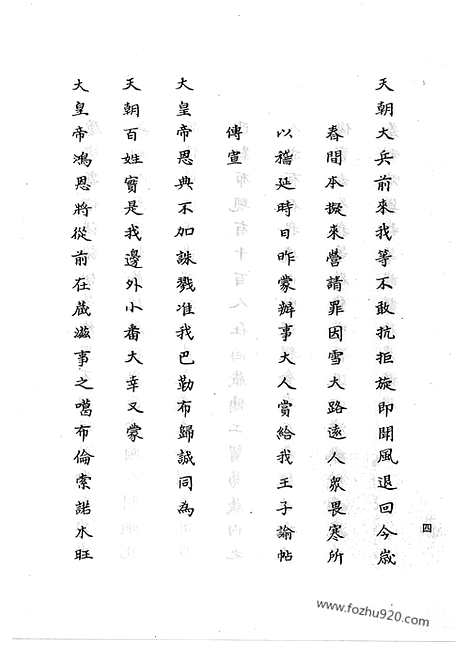 天朝大兵前來我等不敢抗拒旋即聞風退回今歲
春間本擬來營請罪因雪大路遠人眾畏寒所
以稽延時日昨蒙辦事大人賞給我王子諭帖
傳宣
大皇帝恩典不加誅戮准我巴勒布歸誠同為
天朝百姓實是我邊外小番大幸又蒙
大皇帝鴻恩將從前在藏滋事之噶布倫索諾木旺
四
www.fozhu920.com